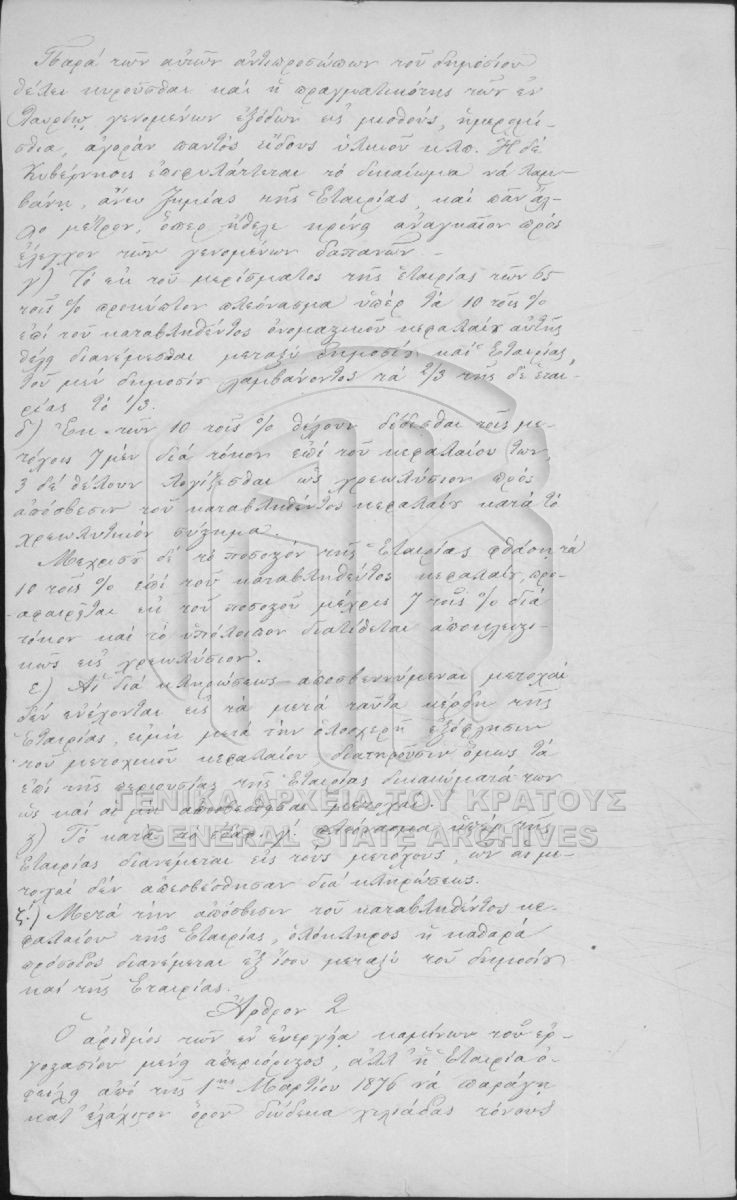 Παρά τῶν αὐτῶν ἀντιπροσώπων τοῦ δημοσίου
θέλει κυροῦσθαι καί ἡ πραγματικότης τῶν ἐν
Λαυρίῳ γενομένων ἐξόδων εἰς μισθούς, ἡμερομί-
σθια, ἀγοράν παντός εἴδους ὑλικοῦ κλπ. Ἡ δέ
Κυβέρνησις ἐπιφυλάττεται τό δικαίωμα νά λαμ-
βάνῃ, ἄνευ ζημίας τῆς Ἑταιρίας, καί πᾶν ἄλ-
λο μέτρον, ὅπερ ἤθελε κρίνῃ ἀναγκαῖον πρός
ἔλεγχον τῶν γενομένων δαπανῶν.
γ) Τό ἐκ τοῦ μερίσματος τῆς ἑταιρίας τῶν 65
τοῖς % προκύπτον πλεόνασμα ὑπέρ τά 10 τοῖς %
ἐπί τοῦ καταβληθέντος ὀνομαστικοῦ κεφαλαίου αὐτῆς
θέλῃ διανέμεσθαι μεταξύ δημοσίου καί Ἑταιρίας,
τοῦ μέν δημοσίου λαμβάνοντος τά 2/3 τῆς δέ ἑται-
ρίας τό 1/3.
δ) Ἐκ τῶν 10 τοῖς % θέλουν δίδεσθαι τοῖς με-
τόχοις 7 μέν διά τόκον ἐπί τοῦ κεφαλαίου των,
3 δέ θέλουν λογίζεσθαι ὡς χρεωλύσιον πρός
ἀπόσβεσιν τοῦ καταβληθέντος κεφαλαίου κατά τό
χρεωλυτικόν σύστημα.
Μέχρισοῦ δέ τό ποσοστόν τῆς Ἑταιρίας φθάσῃ τά
10 τοῖς % ἐπί τοῦ καταβληθέντος κεφαλαίου, προ-
αφαιρῆται ἐκ τοῦ ποσοστοῦ μέχρις 7 τοῖς % διά
τόκον καί τό ὑπόλοιπον διατίθεται ἀποκλειστι-
κῶς εἰς χρεωλύσιον.
ε) Αἱ διά κληρώσεως ἀποσβεννύμεναι μετοχαί
δέν ἐνέχονται εἰς τά μετά ταῦτα κέρδη τῆς
Ἑταιρίας, εἰμή μετά τήν ὁλοσχερῆ ἐξόφλησιν
τοῦ μετοχικοῦ κεφαλαίου, διατηροῦσιν ὅμως τά
ἐπί τῆς περιουσίας τῆς Ἑταιρίας δικαιώματά των
ὡς καί αἱ μή ἀποσβεσθῆσαι μετοχαί.
ΓΕΝΙΚΑ ΑΡΧΕΙΑ ΤΟΥ ΚΡΑΤΟΥΣ
GENERAL STATE ARCHIVES
ϛ) Τό κατά τό ἐδάφ. γ΄. πλεόνασμα ὑπέρ τῆς
Ἑταιρίας διανέμεται εἰς τούς μετόχους, ὧν αἱ με-
τοχαί δέν ἀπεσβέσθησαν διά κληρώσεως.
ζ΄.) Μετά τήν ἀπόσβεσιν τοῦ καταβληθέντος κε-
φαλαίου τῆς Ἑταιρίας, ὁλόκληρος ἡ καθαρά
πρόσοδος διανέμεται ἐξ ἴσου μεταξύ τοῦ δημοσίου
καί τῆς Ἑταιρίας.
Ἄρθρον 2
Ὁ ἀριθμός τῶν ἐν ἐνεργείᾳ καμίνων τοῦ ἐρ-
γοστασίου μένῃ ἀπεριόριστος, ἀλλ' ἡ Ἑταιρία ὀ-
φείλῃ ἀπό τῆς 1ης Μαρτίου 1876 νά παράγῃ
κατ' ἐλάχιστον ὅρον δώδεκα χιλιάδας τόνους